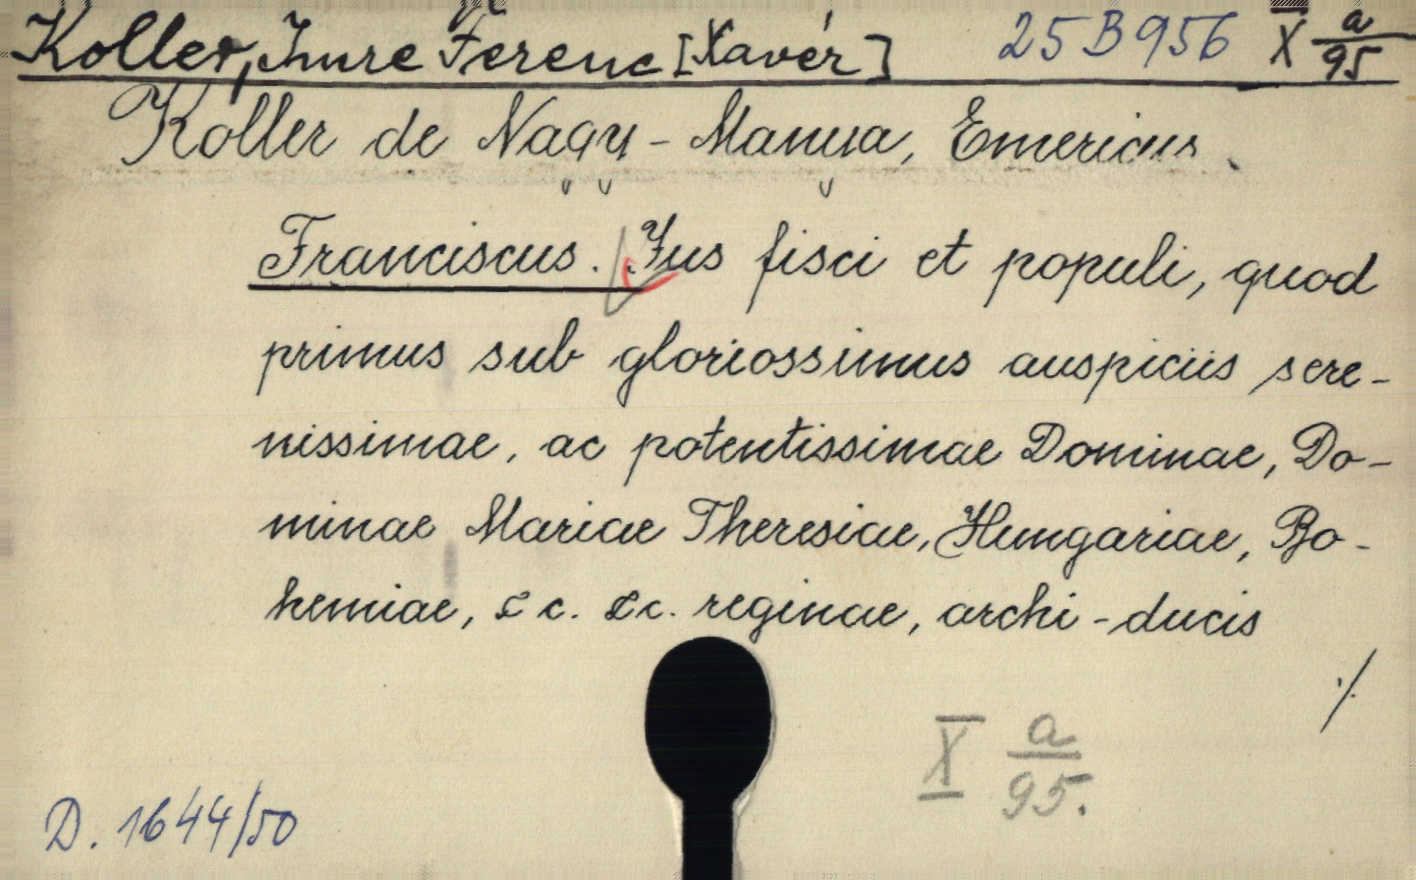 Koller, Imre Ferenc [Xavér] 25B956 X a/95
Koller de Nagy-Manya, Emericus
Franciscus. Jus fisci et populi, quod
primus sub gloriossimus auspiciis sere-
nissimae, ac potentissimae Dominae, Do-
minae Mariae Theresiae, Hungariae, Bo-
hemiae, &c. &c. reginae, archi-ducis
./.
X a/95.
D. 1644/50